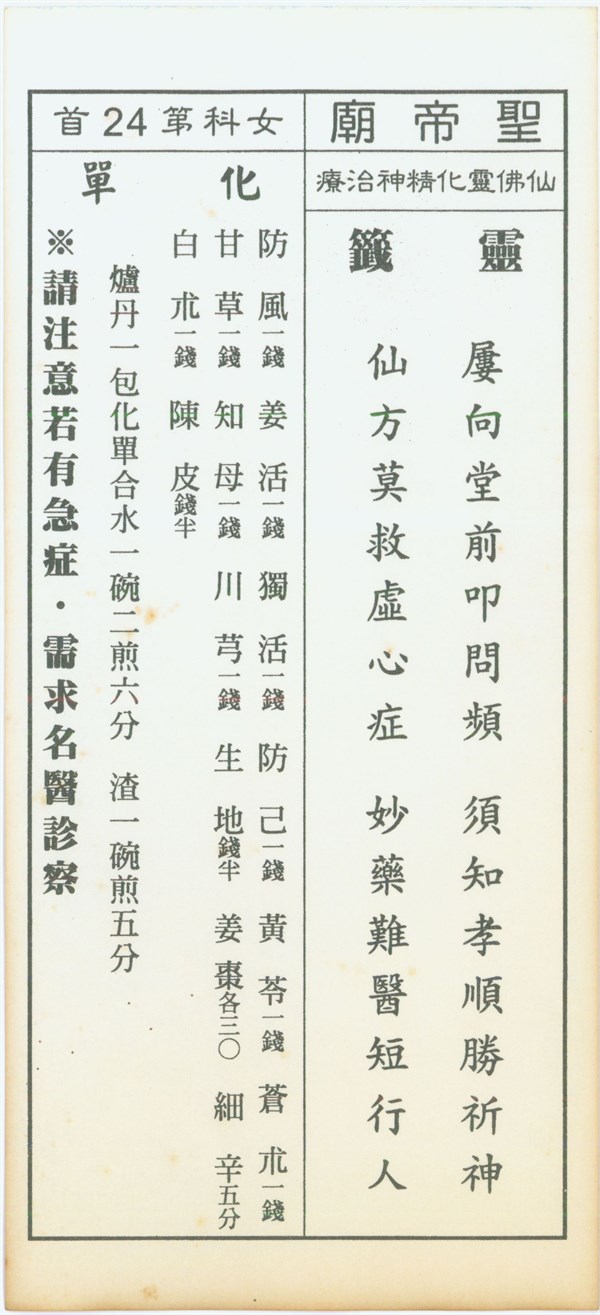 聖帝廟
仙佛靈化精神治療
靈籤
屢向堂前叩問頻 須知孝順勝祈神
仙方莫救虛心症 妙藥難醫短行人
女科第24首
化單
防風一錢 姜活一錢 獨活一錢 防己一錢 黃苓一錢 蒼朮一錢
甘草一錢 知母一錢 川芎一錢 生地錢半 姜棗各三〇 細辛五分
白朮一錢 陳皮錢半
爐丹一包化單合水一碗二煎六分 渣一碗煎五分
※請注意若有急症・需求名醫診察